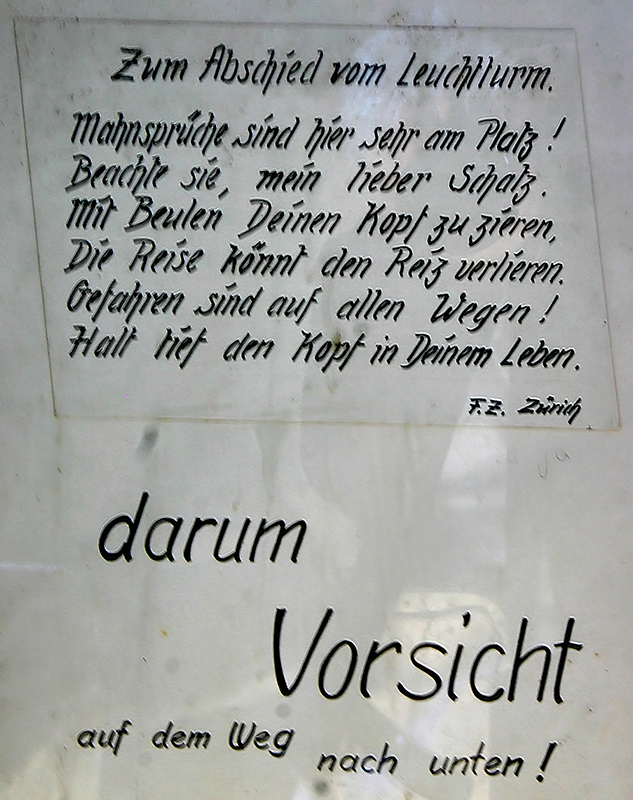 Zum Abschied vom Leuchtturm.
Mahnsprüche sind hier sehr am Platz!
Beachte sie, mein lieber Schatz.
Mit Beulen Deinen Kopf zu zieren,
Die Reise könnt den Reiz verlieren.
Gefahren sind auf allen Wegen!
Halt tief den Kopf in Deinem Leben.
F.Z. Zürich
darum
Vorsicht
auf dem Weg
nach unten!